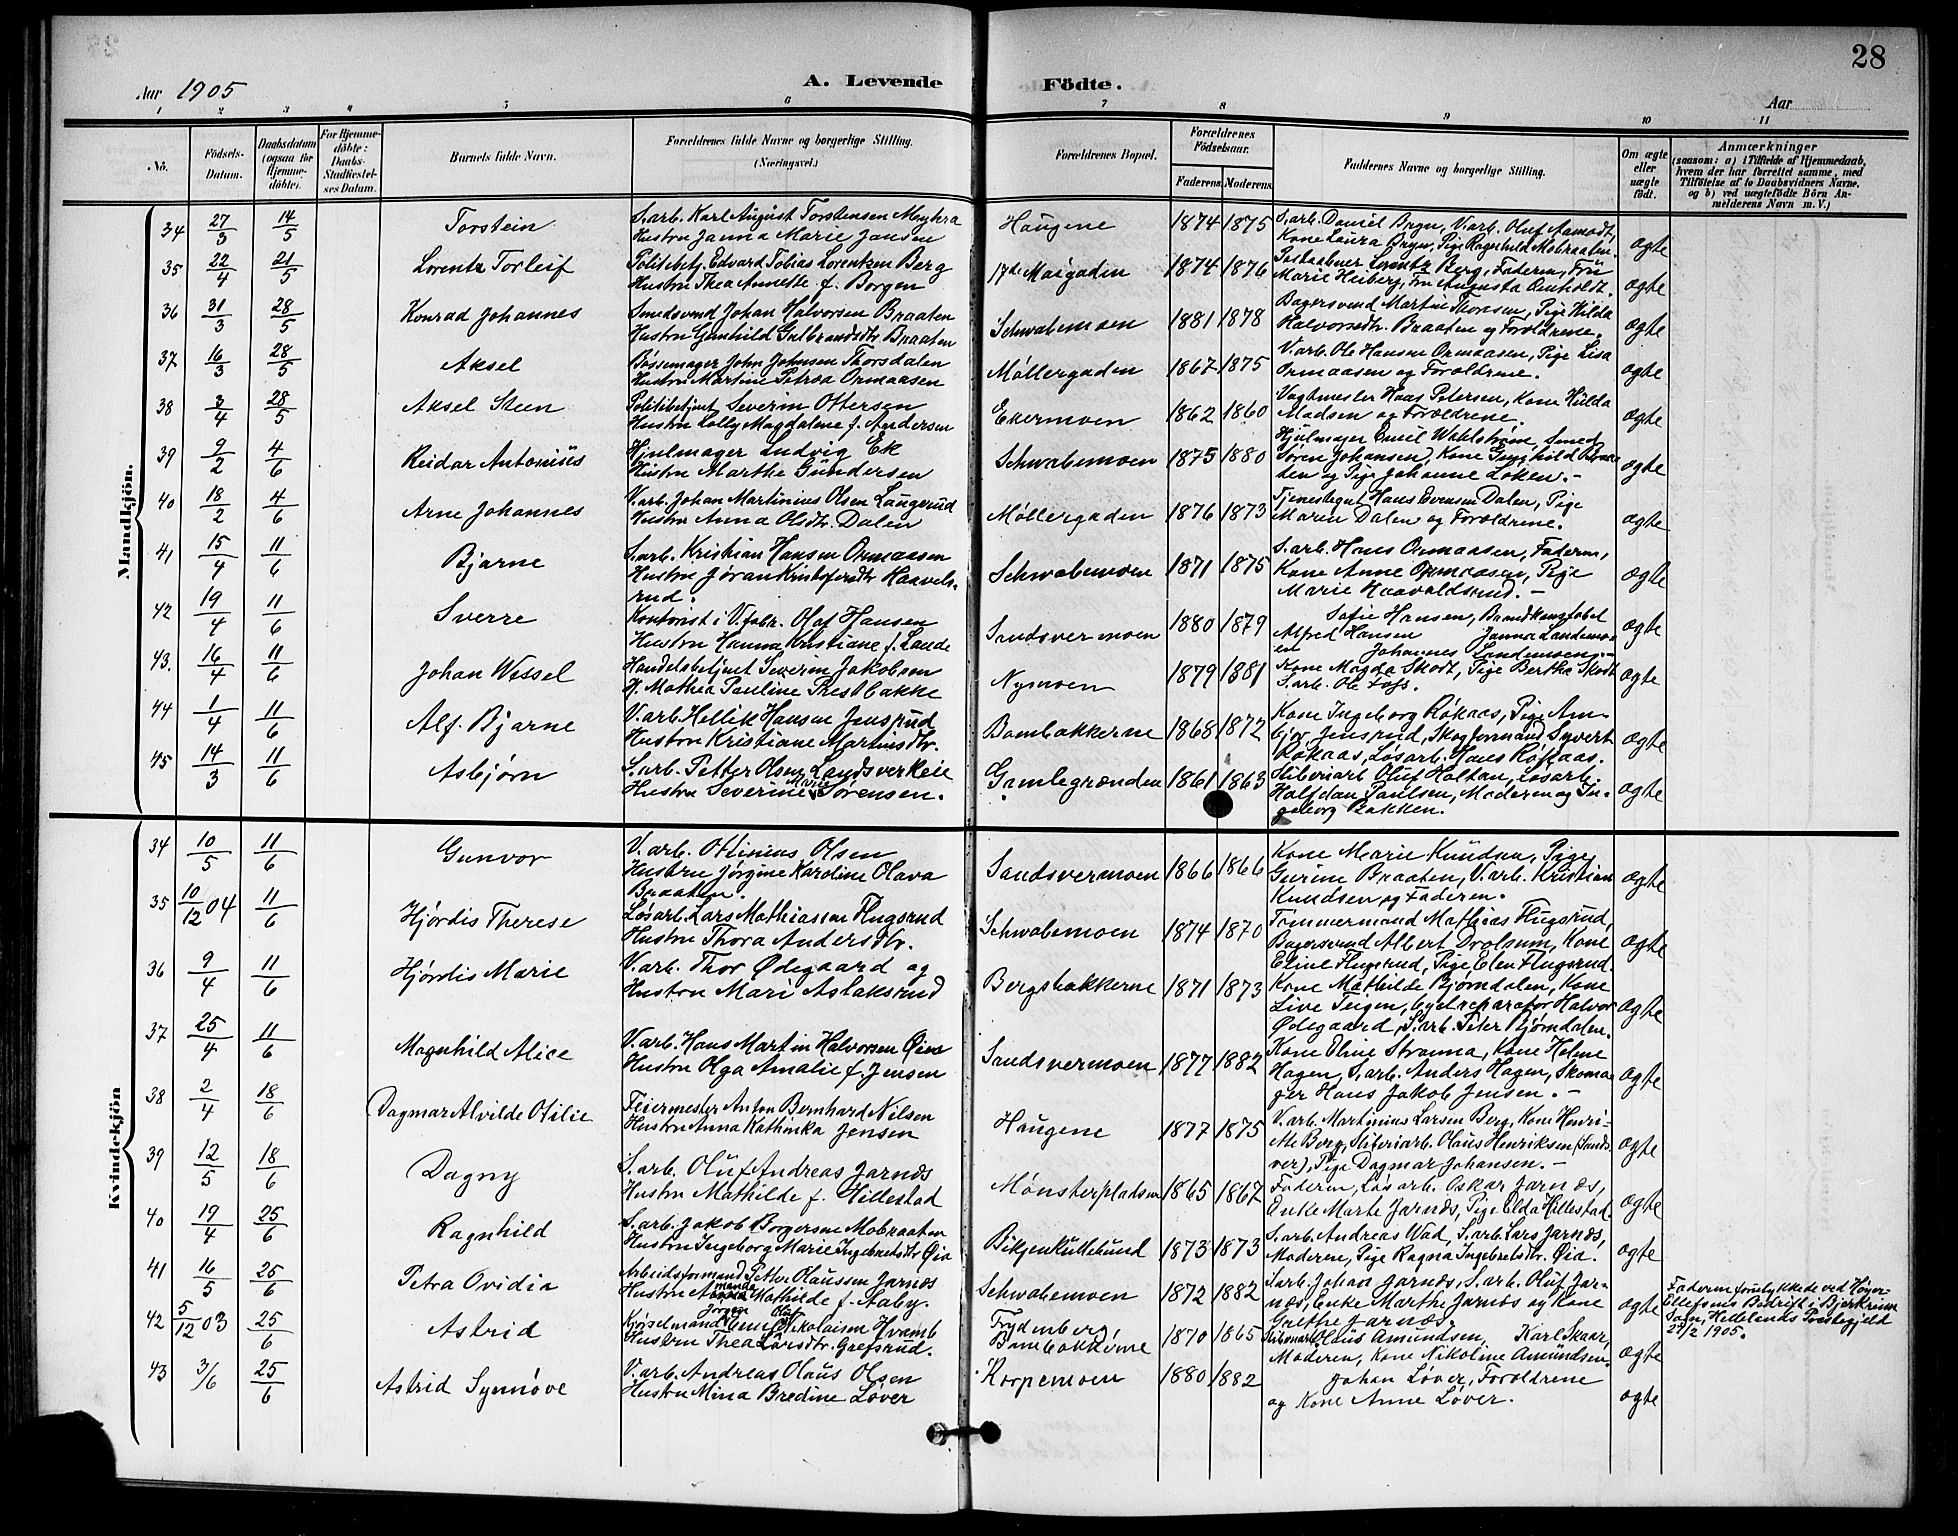 28
Aar 1905
A. Levende Födte.
Aar
1 2 3 4 5 6 7 8 9 10 11
No.
Födsels-Datum.
Daabsdatum (ogsaa for Hjemmedöbte).
For Hjemmedöbte: Daabs-Stadfæstelses Datum.
Barnets fulde Navn.
Forældrenes fulde Navne og borgerlige Stilling. (Næringsvei.)
Forældrenes Bopæl.
Forældrenes Födselsaar.
Faderens. Moderens.
Faddernes Navne og borgerlige Stilling.
Om ægte eller uægte födt.
Anmærkninger
(saasom: a) i Tilfælde af Hjemmedaab, hvem der har forrettet samme, med Tilföielse af to Daabsvidners Navne, og b) ved uægtefödte Börn Anmelderens Navn m. V.)
Mandkjön.
34 27/3 14/5 Torstein
S.arb. Karl August Torstensen Myhra
Hustru Janna Marie Jansen
Haugene 1874 1875
S.arb. Daniel Bryn, V.arb. Oluf Aamodt,
Kone Laura Bryn, Pige Ragnhild Mobraaten.
ægte
35 22/4 21/5 Lorentz Torleif
Politibetj. Edvard Tobias Lorentzen Berg
Hustru Thea Annette f. Borgen
17de Maigaden 1874 1876
Postaabner Lorentz Berg, Faderen, Fru
Marie Heiberg, Fru Augusta
ægte
36 31/3 28/5 Konrad Johannes
Smedsvend Johan Halvorsen Braaten
Hustru Gunhild Gulbrandsdtr. Braaten
Schwabemoen 1881 1878
Bagersvend Martin Thoresen, Pige Hilda
Halvorsdtr. Braaten og Forældrene.
ægte
37 16/3 28/5 Aksel
Bössemager John Johnsen Thorsdalen
Hustru Martine Petrea Ormaasen
Møllergaden 1867 1875
V.arb. Ole Hansen Ormaasen, Pige Lisa
Ormaasen og Forældrene.
ægte
38 3/4 28/5 Aksel Steen
Politibetjent Severin Ottersen
Hustru Lolly Magdalene f. Andersen
Ekermoen 1862 1860
Vagtmester Hans Petersen, Kone Hulda
Madsen og Forældrene.
ægte
39 9/2 4/6 Reidar Antonius
Hjulmager Ludvig Ek
Hustru Marthe Gundersen
Schwabemoen 1875 1880
Hjulmager Emil Wahlstrøm, Smed
Søren Johansen, Kone Gunhild
og Pige Johanne Løken. -
ægte
40 18/2 4/6 Arne Johannes
V.arb. Johan Martinius Olsen Laugerud
Hustru Anna Olsdtr. Dalen
Møllergaden 1876 1873
Tjenestegut Hans Evensen Dalen, Pige
Maren Dalen og Forældrene.
ægte
41 15/4 11/6 Bjarne
S.arb. Kristian Hansen Ormaasen
Hustru Jøran Kristofersdtr. Haavelsrud.
Schwabemoen 1871 1875
S.arb. Hans Ormaasen, Faderen,
Kone Anne Ormaasen, Pige
Marie Haavaldsrud. -
ægte
42 19/4 11/6 Sverre
Kontorist i V.fabr. Olaf Hansen
Hustru Hanna Kristiane f. Lande
Sandsvermoen 1880 1879
Sofie Hansen, Brandkonstabel
Alfred Hansen Janna Landemoen
Johannes Landemoen
ægte
43. 16/4 11/6 Johan Wessel
Handelsbetjent Severin Jakobsen
H. Mathea Pauline Prestbakke
Nymoen 1879 1881
Kone Magda Skodt, Pige Bertha Skodt
S.arb. Ole Foss.
ægte
44 1/4 11/6 Alf Bjarne
V.arb. Hellik Hansen Jensrud
Hustru Kristiane Martinsdtr.
Bombakkerne 1868 1872
Kone Ingeborg Røkaas, Pige Ambjør Jensrud, Skogformand Syvert
Røkaas, Løsarb. Hans Røkaas.
ægte
45 14/3 11/6 Asbjørn
S.arb. Petter Olsen Landsverkeie
Hustru Severine Marie Sørensen.
Gamlegrænden 1861 1863
Sliberiarb. Oluf Holtan, Løsarb.
Halfdan Paulsen, Moderen og Ingeborg Bakken.
ægte
Kvindekjön
34 10/5 11/6 Gunvor
V.arb. Ottinius Olsen
Hustru Jørgine Karoline Olava
Braaten.
Sandsvermoen 1866 1866
Kone Marie Knudsen, Pige
Gurine Braaten, V.arb. Kristian
Knudsen og Faderen.
ægte
35 10/12 04 11/6 Hjørdis Therese
Løsarb. Lars Mathiassen Flugsrud
Hustru Thora Andersdtr.
Schwabemoen 1874 1870
Tømmermand Mathias Flugsrud,
Bagersvend Albert Drolsum, Kone
Eline Flugsrud, Pige Elen Flugsrud.
ægte
36 9/4 11/6 Hjørdis Marie
V.arb. Thor Ødegaard og
Hustru Mari Aslaksrud
Bergsbakkerne 1871 1873
Kone Mathilde Bjørndalen, Kone
Live Teigen, Cyclereparatør Halvor
Ødegaard, S.arb. Peter Bjørndalen.
ægte
37 25/4 11/6 Magnhild Alice
V.arb. Hans Martin Halvorsen Øien
Hustru Olga Amalie f. Jensen
Sandsvermoen 1877 1882
Kone Eline Stranna, Kone Helene
Hagen, S.arb. Anders Hagen, Skomager Hans Jakob Jensen. -
ægte
38 2/4 18/6 Dagmar Alvilde Otilie
Feiermester Anton Bernhard Nilsen
Hustru Anna Kathinka Jensen
Haugene 1877 1875
V.arb. Martinius Larsen Berg, Kone Henriette Berg, Sliberiarb. Olaus Henriksen (Sandsver), Pige Dagmar Johansen. -
ægte
39 12/5 18/6 Dagny
S.arb. Oluf Andreas Jarnæs
Hustru Mathilde f. Hillestad
Mønsterpladsen 1865 1867
Faderen, Løsarb. Oskar Jarnæs,
Enke Marte Jarnæs, Pige Elda Hillestad
ægte
40 19/4 25/6 Ragnhild
S.arb. Jakob Borgersen Mobraaten
Hustru Ingeborg Marie Ingebretsdtr. Øia
1873 1873
S.arb. Andreas Wad, S.arb. Lars Jarnæs,
Moderen, Pige Ragna Ingebretsdtr. Øia.
ægte
41 16/5 25/6 Petra Ovidia
Arbeidsformand Petter Olaussen Jarnæs
Hustru Amanda Mathilde f. Aaby.
Schwabemoen 1872 1882
S.arb. Johan Jarnæs, S.arb. Oluf Jarnæs, Enke Marthe Jarnæs og Kone
Grethe Jarnæs.
ægte
Faderen forulykkede ved Høyer-Ellefsens Bedrift i Bjerkreim
Sogn, Hellelands Prestegjeld
27/2 1905.
42 5/12 03 25/6 Astrid
Kjørselmand Jørgen Oluf Nikolaisen Hvamb
Hustru Thea Larsdtr. Grefsrud.
Frydenberg, Bombakkerne 1870 1865
Sliberiarb. Olaus Amundsen, Karl Skaar,
Moderen, Kone Nikoline Amundsen.
ægte
43 3/6 25/6 Astrid Synnøve
V.arb. Andreas Olaus Olsen
Hustru Mina Bredine Løver
Korpemoen 1880 1882
Johan Løver, Forældrene
og Kone Anne Løver.
ægte